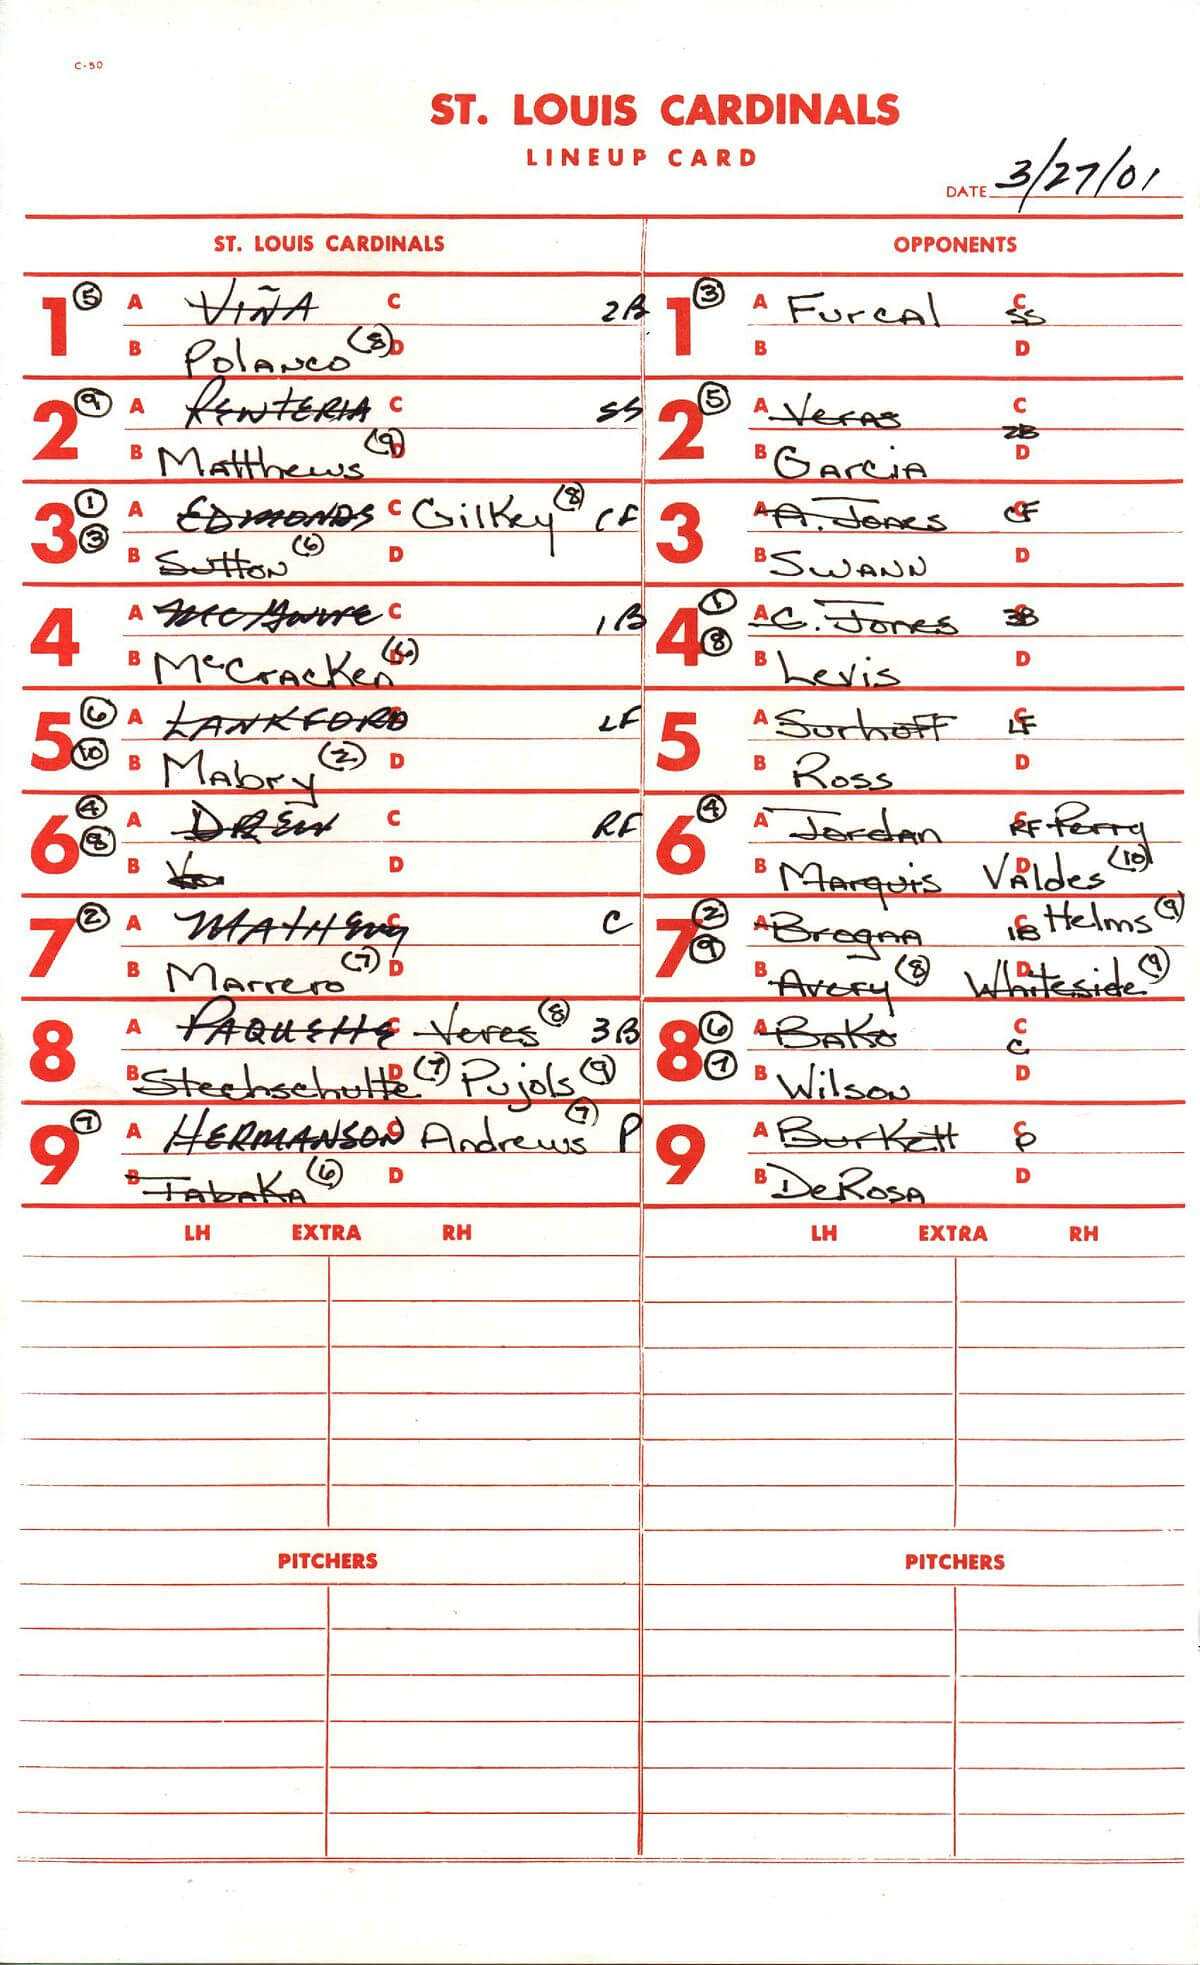 C-50
ST. LOUIS CARDINALS
LINEUP CARD
DATE 3/27/01
ST. LOUIS CARDINALS
1 (5) A VIÑA C 2B
B POLANCO (8) D
2 (9) A RENTERIA C SS
B MATTHEWS (9) D
3 (1) A EDMONDS C Gilkey (8) CF
(3) B SUTTON (6) D
4 A McGwire C 1B
B McCracken (6) D
5 (6) A LANKFORD C LF
(10) B Mabry (2) D
6 (4) A DREW C RF
(8) B D
7 (2) A MATHENY C C
B Marrero (7) D
8 A PAQUETTE C Veres (8) 3B
B Stechschulte (7) D Pujols (9)
9 (7) A HERMANSON C Andrews (7) P
B Tabaka (6) D
LH EXTRA RH
PITCHERS
OPPONENTS
1 (3) A Furcal C SS
B D
2 (5) A Veras C 2B
B Garcia D
3 A A. Jones C CF
B SWANN D
4 (1) A C. Jones C 3B
(8) B Levis D
5 A Surhoff C LF
B Ross D
6 (4) A Jordan C RF Perry
B Marquis D Valdes (10)
7 (2) A Brogna C 1B Helms (9)
(9) B Avery (8) D Whiteside (9)
8 (6) A Bako C C
(7) B Wilson D
9 A Burkett C P
B DeRosa D
LH EXTRA RH
PITCHERS